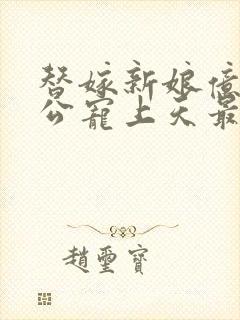 替嫁新娘億
公寵上天最
趙璽寶